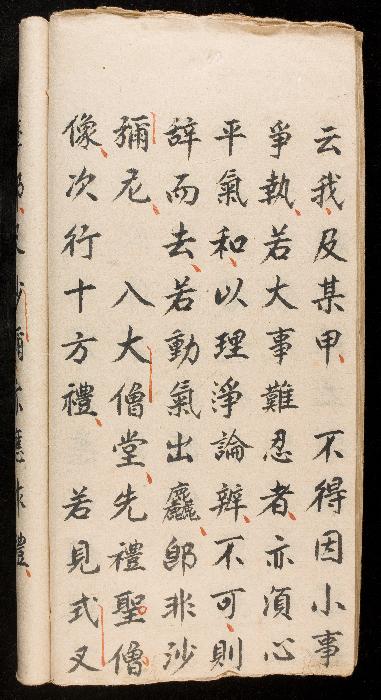 云我及某甲　不得因小事
爭執若大事難忍者亦須心
平氣和以理淨論辨不可則
辞而去若動氣出麤郎非沙
彌尼　入大僧堂先禮聖僧
像次行十方禮　若見式叉